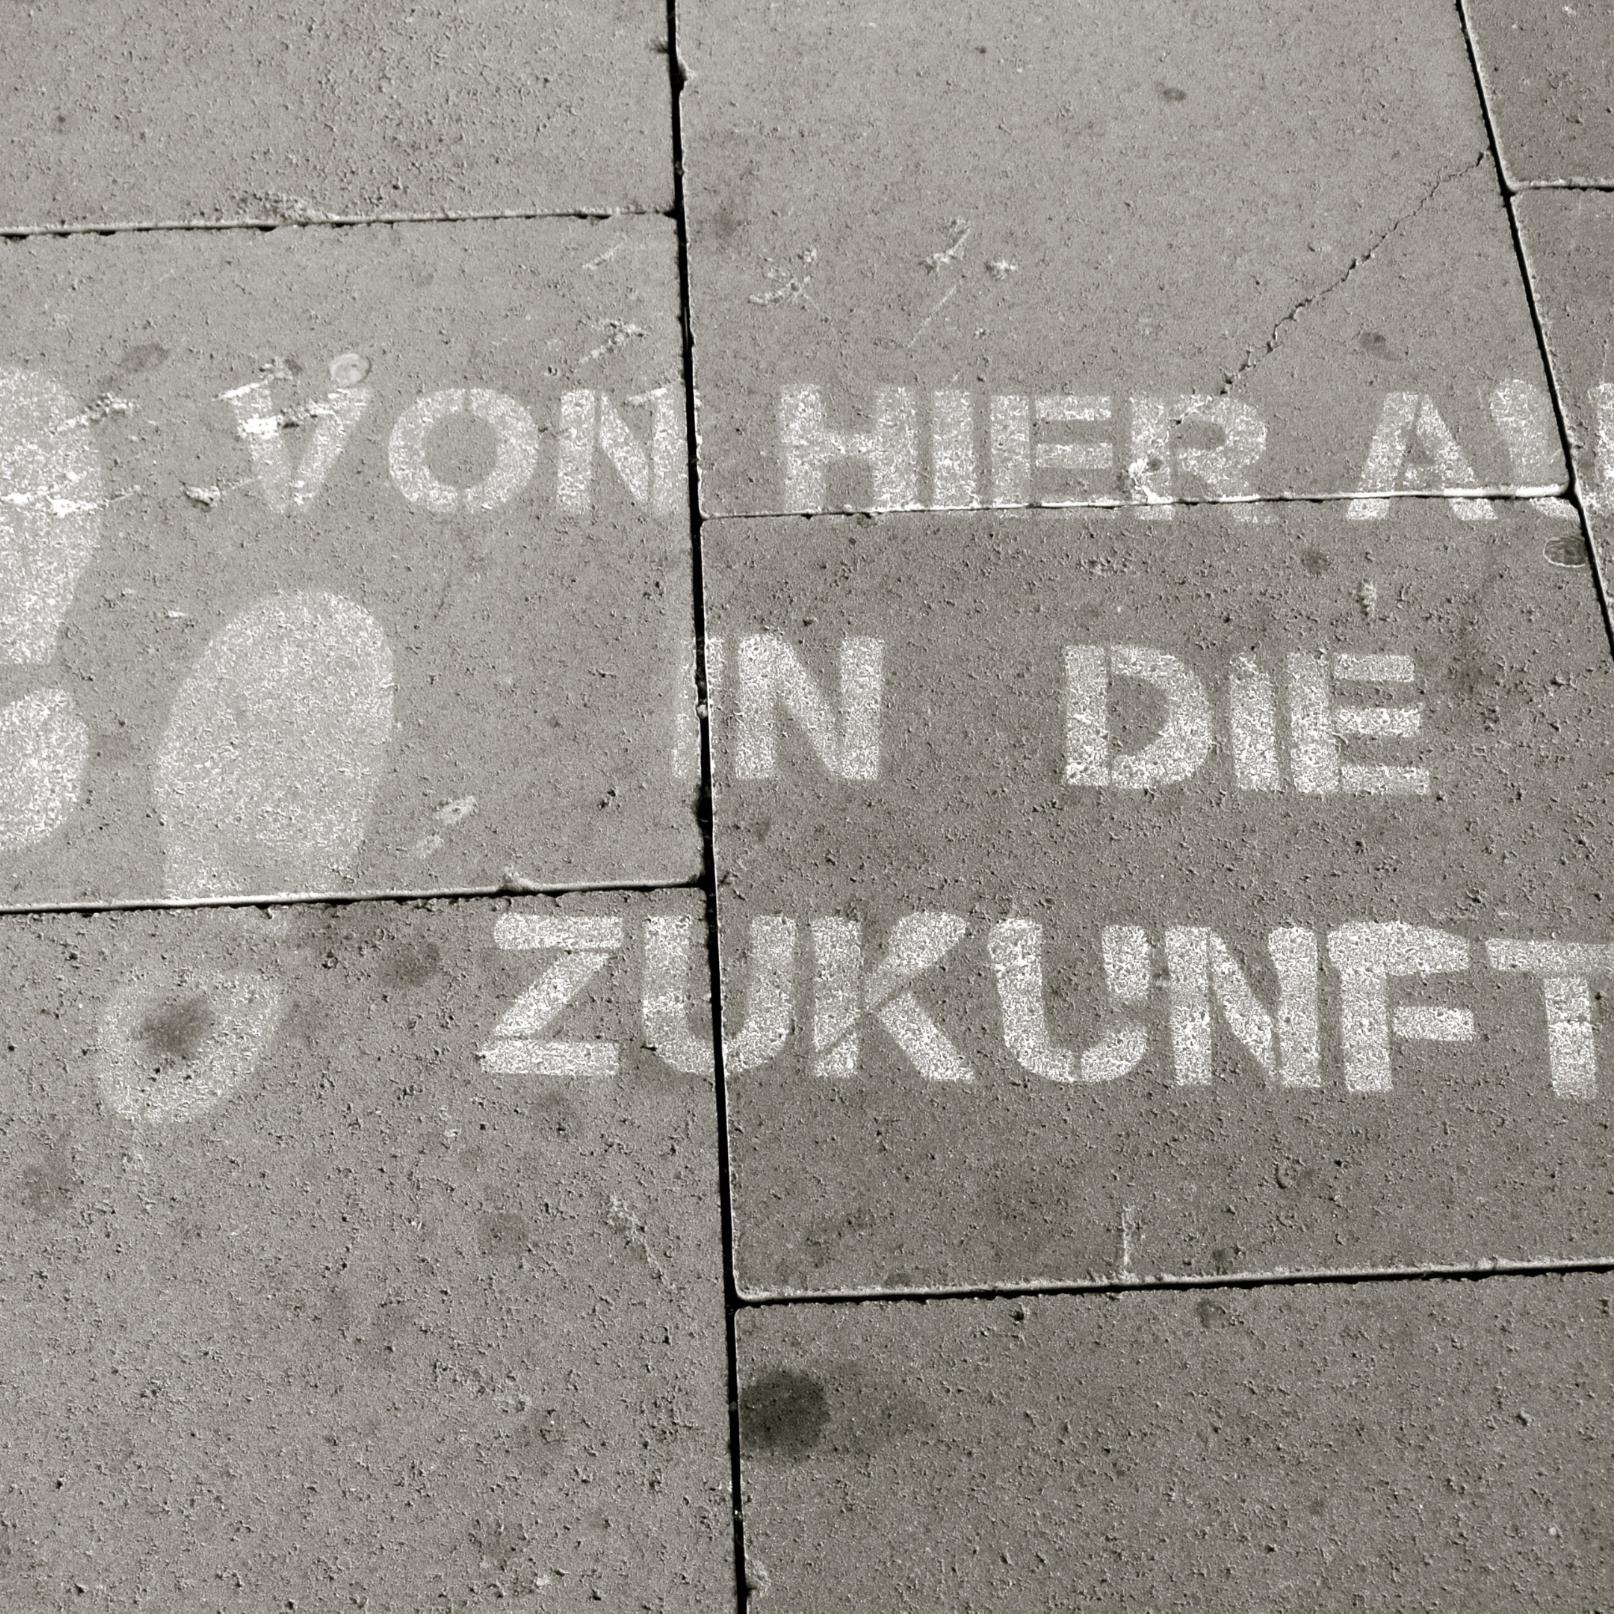 VON HIER AU
IN DIE
ZUKUNFT